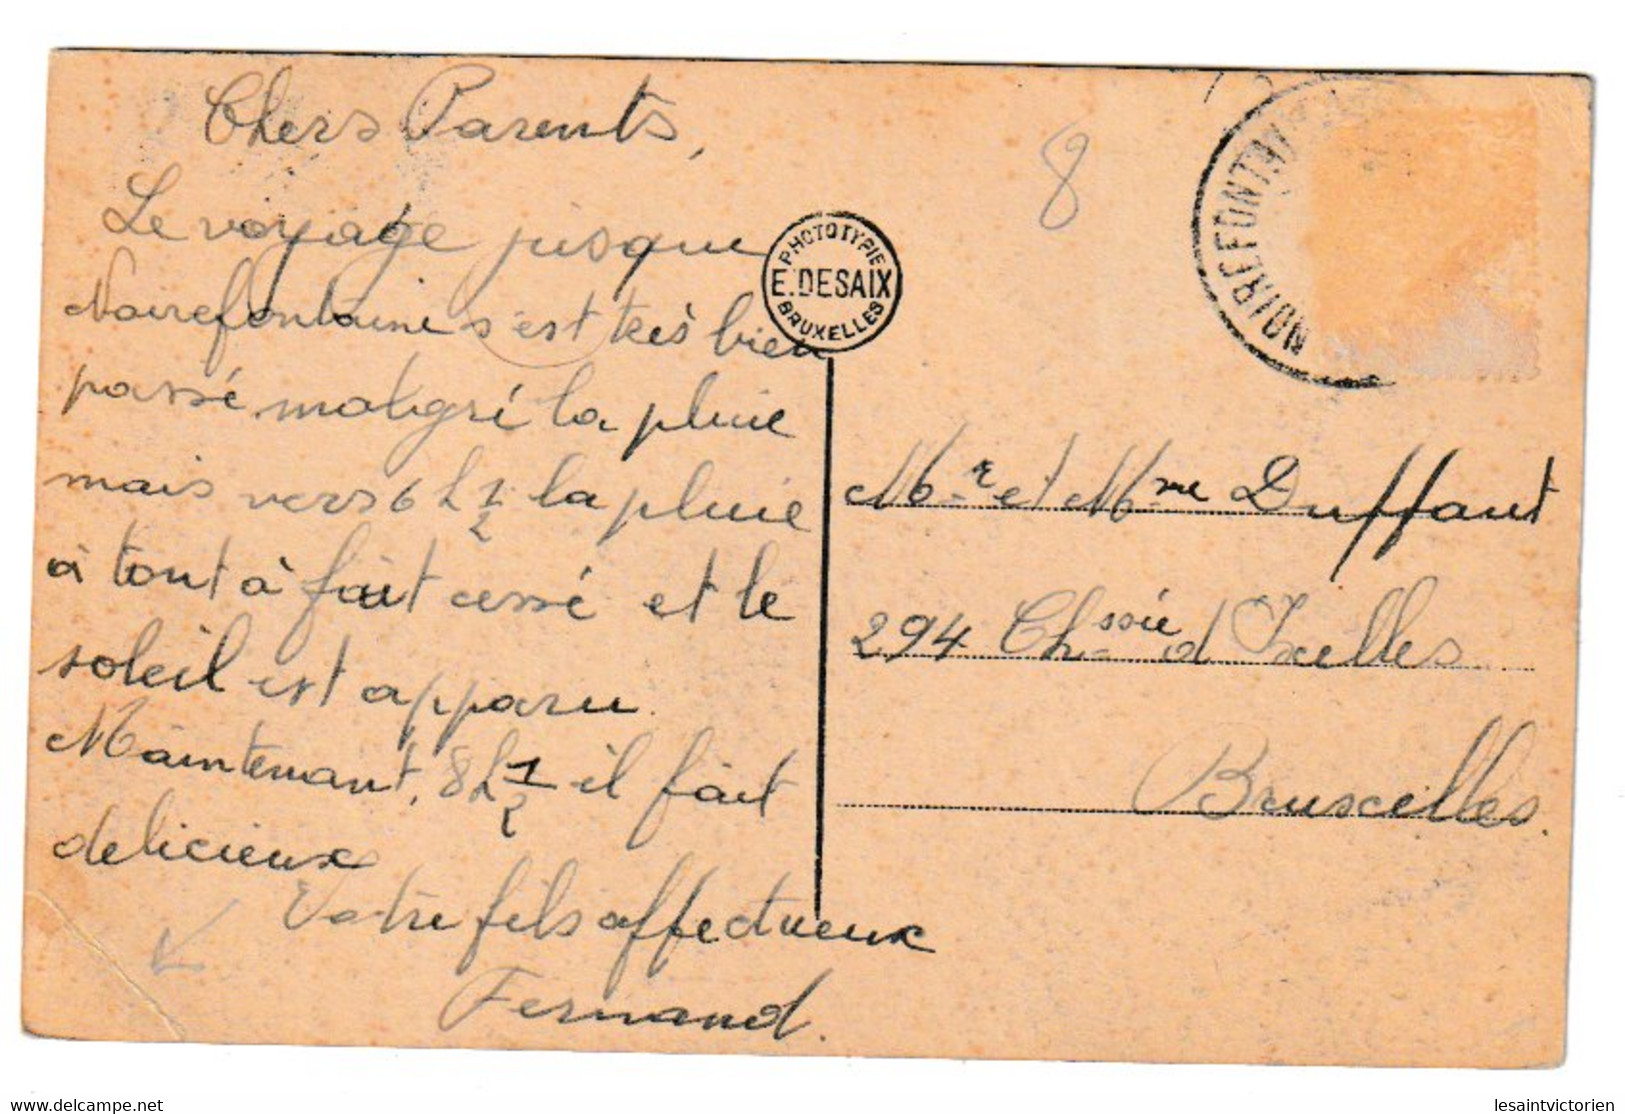 Chers Parents,
Le voyage jusque
Noirefontaine s'est très bien
passé malgré la pluie
mais vers 6 h 1/2 la pluie
à tout à fait cessé et le
soleil est apparu.
Maintenant, 8 h 1/2 il fait
delicieux
Votre fils affectueux
Fernand.
8
PHOTOTYPIE
E. DESAIX
BRUXELLES
NOIREFONTAI
Mr et Mme Duffaut
294 Chssée d Ixelles
Bruxelles.
www.delcampe.net
lesaintvictorien